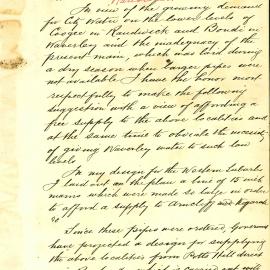 In view of the growing demand
for City Water on the lower levels of
Coogee in Randwick and Bondi in
Waverley and the inadequacy of the
present main, which was laid during
a dry season when larger pipes were
not available I have the honor most
respectfully to make the following
suggestion with a view of affording a
free supply to the above localities and
at the same time to obviate the necessity
of giving Waverley water to such low
levels
In my design for the Western Suburbs
I laid out on the plan a line of 15 inch
mains which were made so large in order
to afford a supply to Arncliffe and Kogarah
&c
Since these pipes were ordered, Government
have projected a design for supplying
the above localities from Potts Hill direct